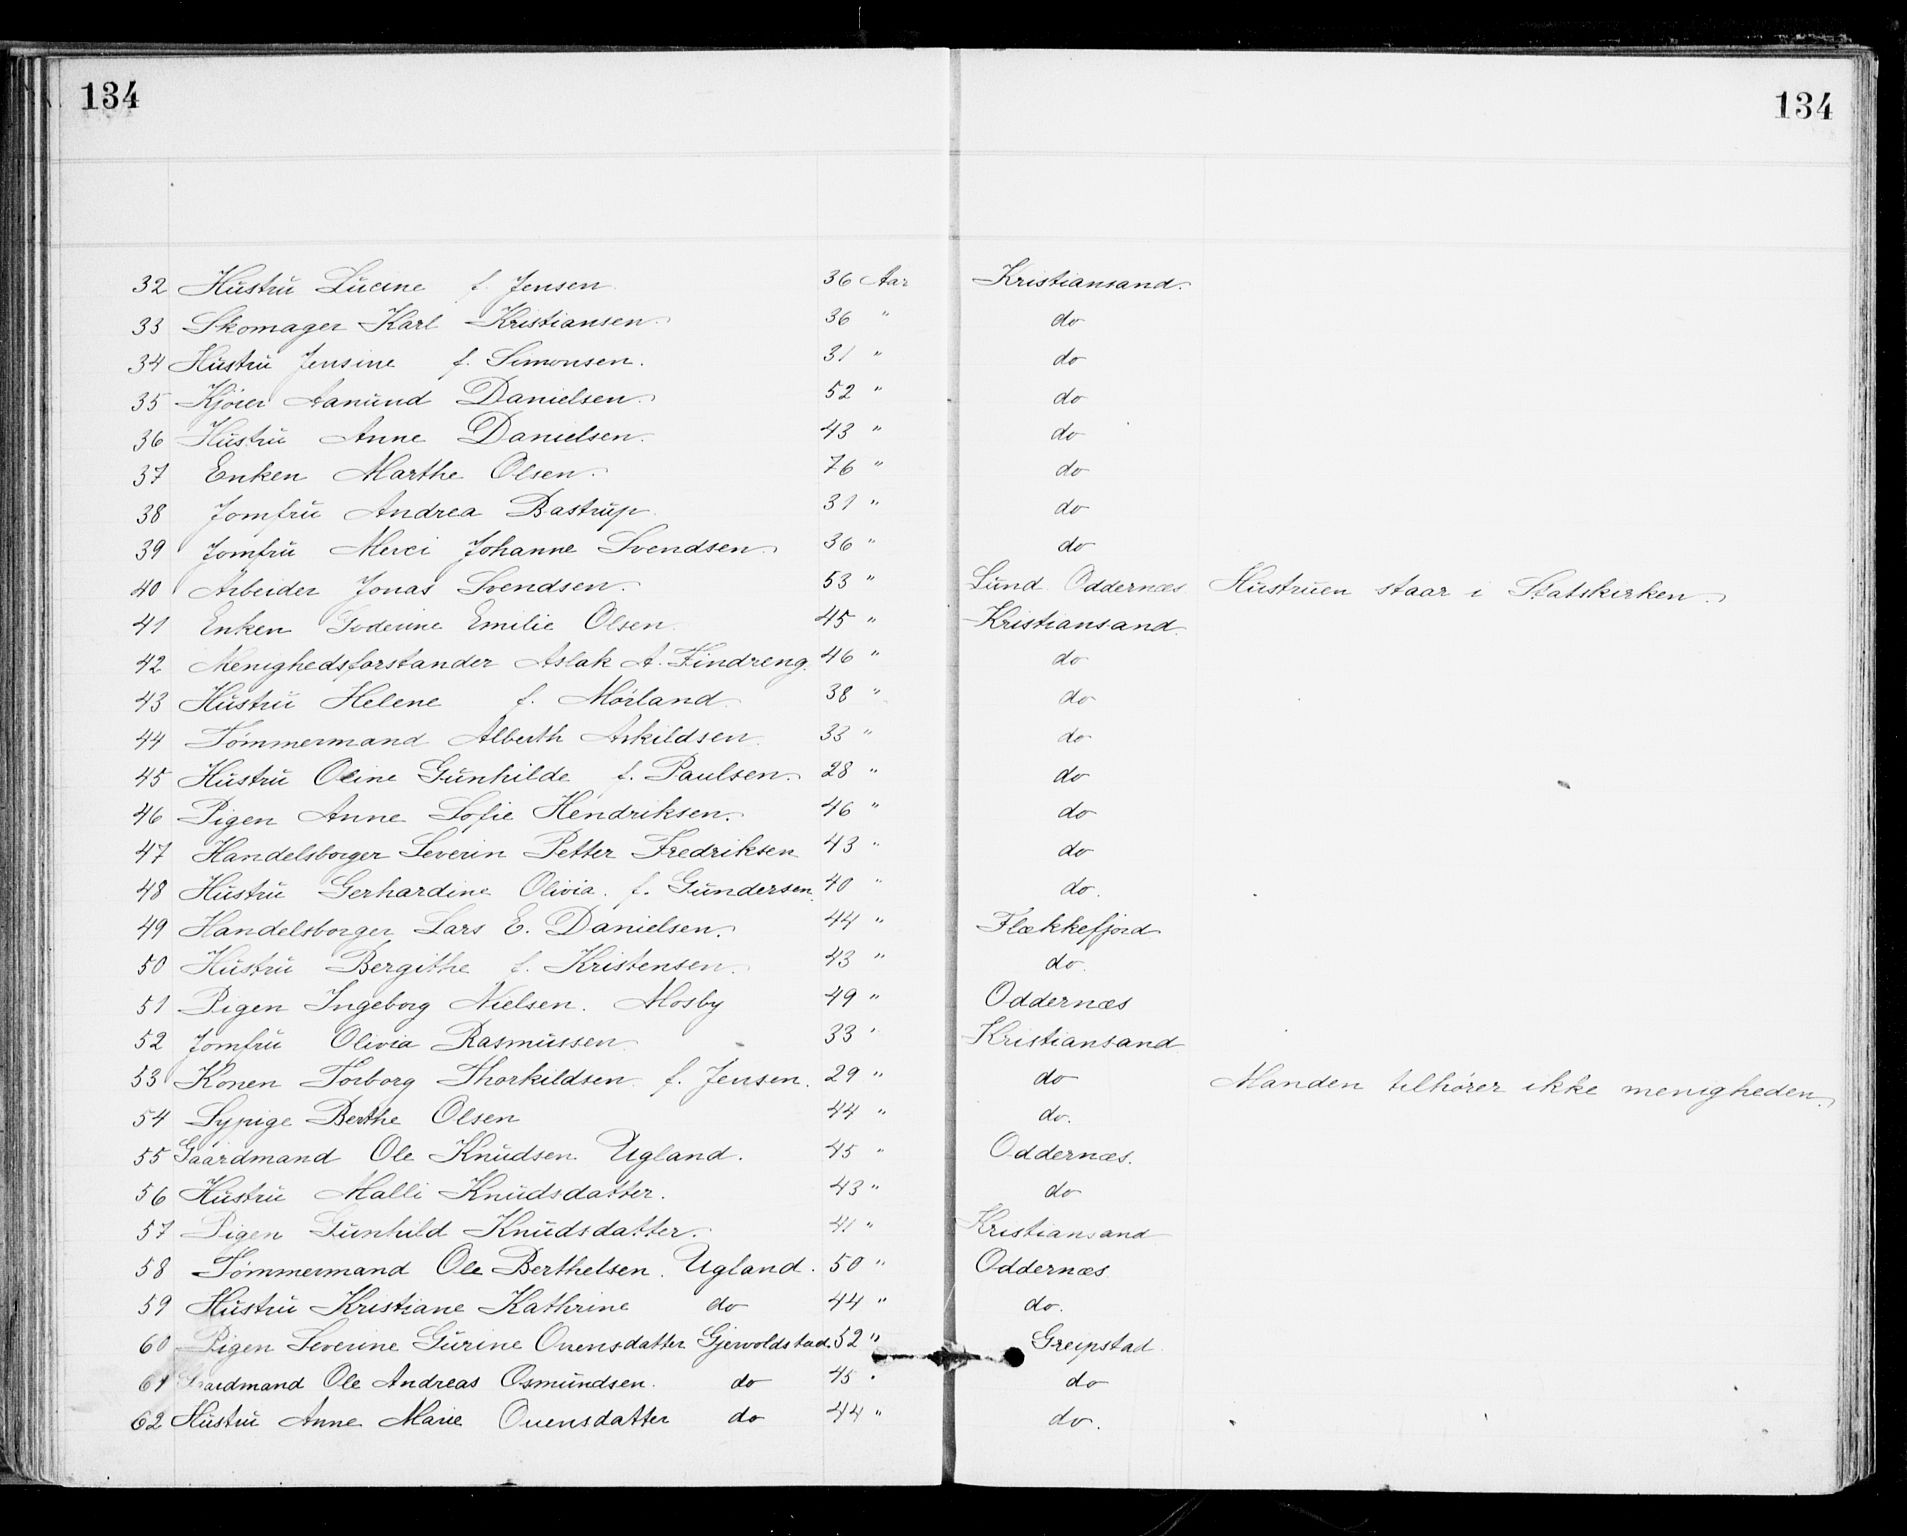 134 134
32 Hustru Lucine f. Jensen 36 Aar Kristiansand.
33 Skomager Karl Kristiansen. 36 " do
34 Hustru Jensine f. Simonsen. 31 " do
35 Kjörer Aanund Danielsen. 52 " do
36 Hustru Anne Danielsen. 43 " do
37 Enken Marthe Olsen. 76 " do
38 Jomfru Andrea Bastrup. 31 " do
39 Jomfru Merci Johanne Svendsen. 36 " do
40 Arbeider Jonas Svendsen. 53 " Lund Oddernæs Hustruen staar i Statskirken.
41 Enken Emilie Olsen. 45 " Kristiansand.
42 Menighedsforstander Aslak A. Findreng. 46 " do
43 Hustru Helene f. Mörland. 38 " do
44 Tömmermand Alberth Askildsen. 33 " do
45 Hustru Oline Gunhilde f. Paulsen. 28 " do
46 Pigen Anne Sofie Hendriksen. 46 " do
47 Handelsborger Severin Petter Fredriksen 43 " do
48 Hustru Gerhardine Olivia. f. Gundersen. 40 " do.
49 Handelsborger Lars E. Danielsen. 44 " Flækkefjord
50 Hustru Bergithe f. Kristensen. 43 " do.
51 Pigen Ingeborg Nielsen. Mosby 49 " Oddernæs
52 Jomfru Olivia Rasmussen. 33 " Kristiansand
53 Konen Torborg Thorkildsen. f. Jensen. 29 " do Manden tilhörer ikke menigheden.
54 Sypige Berthe Olsen 44 " do.
55 Gaardmand Ole Knudsen Ugland. 45 " Oddernæs.
56 Hustru Malli Knudsdatter. 43 " do
57 Pigen Gunhild Knudsdatter. 41 " Kristiansand
58 Tömmermand Ole Berthelsen. Ugland. 50 " Oddernæs
59 Hustru Kristiane Kathrine do 44 " do.
60 Pigen Severine Gurine Ouensdatter Gjervoldstad. 52 " Greipstad.
61 Gaardmand Ole Andreas Osmundsen. do 45 " do
62 Hustru Anne Marie Ouensdatter do 44 " do.